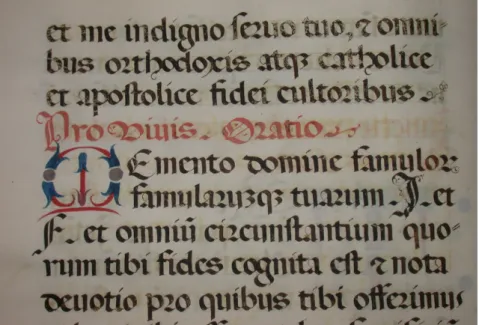 et me indigno seruo tuo, ⁊ omni-
bus orthodoxis atqꝫ catholice
et apostolice fidei cultoribus.
Pro viuis. Oratio.
Memento domine famuloꝝ
famularuꝫqꝫ tuarum. J. et
F. et omniū circumstantium quo-
rum tibi fides cognita est ⁊ nota
deuotio pro quibus tibi offerimus